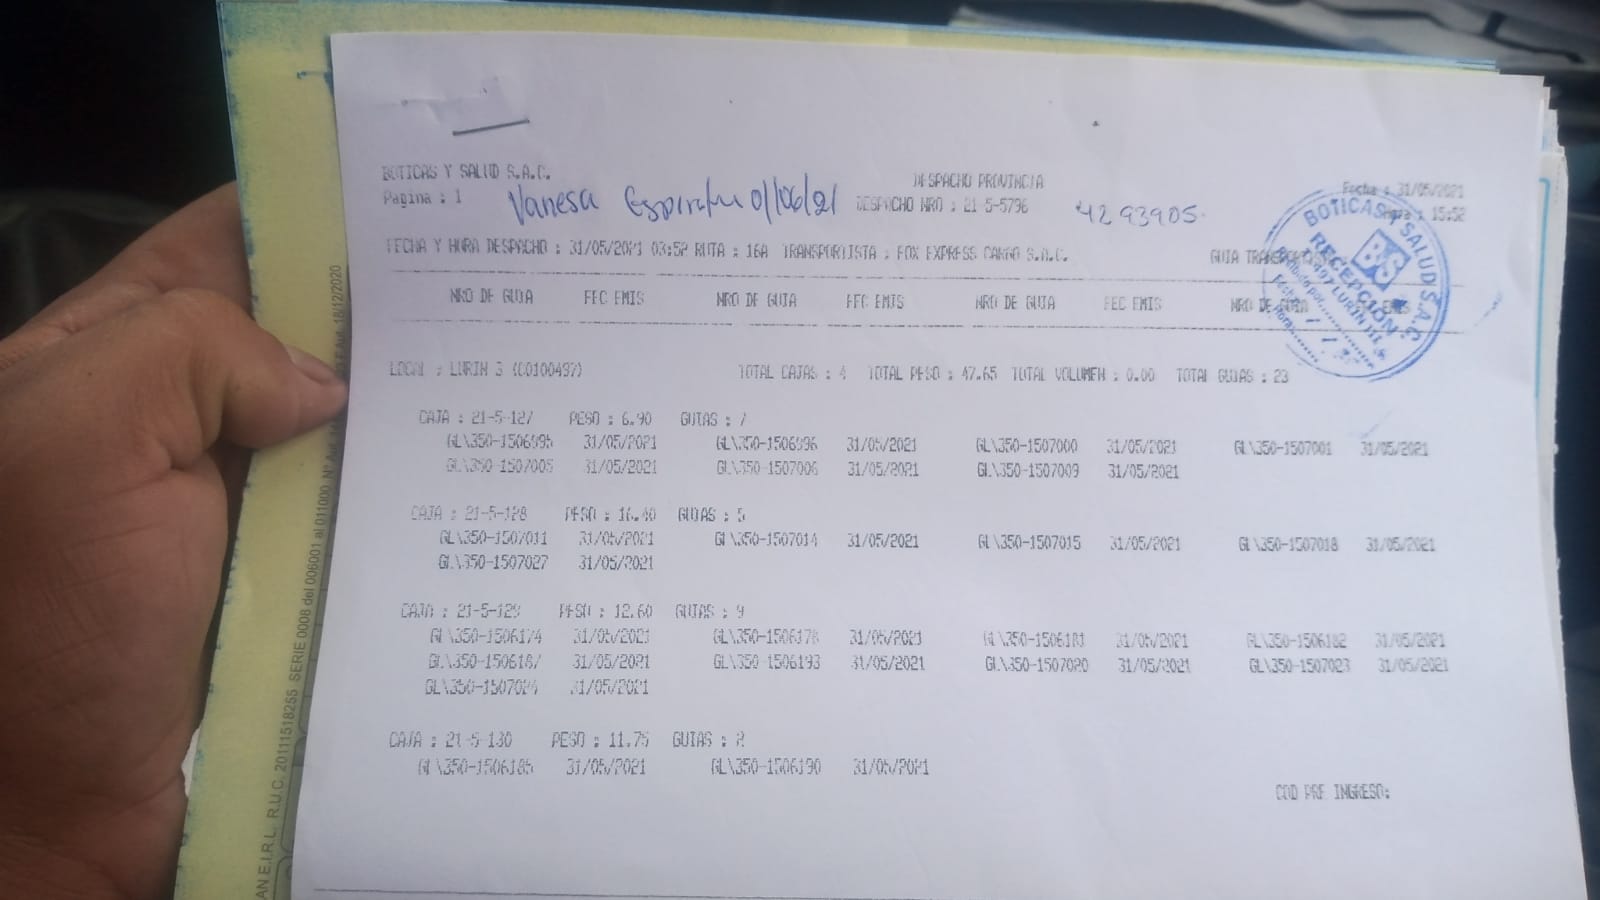 BOTICAS Y SALUD S.A.C.
DESPACHO PROVINCIA
Fecha : 31/05/2021
Pagina : 1
Vanesa
01/06/21
DESPACHO NRO : 21-5-5796
4293905.
: 15:52
FECHA Y HORA DESPACHO : 31/05/2021 03:52 RUTA : 16A TRANSPORTISTA : FOX EXPRESS CARGO S.A.C.
GUIA
BOTICAS Y SALUD S.A.C.
BS
RECEPCIÓN
LURIN III
NRO DE GUIA FEC EMIS NRO DE GUIA FEC EMIS NRO DE GUIA FEC EMIS NRO DE GUIA
LOCAL : LURIN 3 (C0100497) TOTAL CAJAS : 4 TOTAL PESO : 47.65 TOTAL VOLUMEN : 0.00 TOTAL GUIAS : 23
CAJA : 21-5-127 PESO : 6.90 GUIAS : 7
GL\350-1506995 31/05/2021 GL\350-1506996 31/05/2021 GL\350-1507000 31/05/2021 GL\350-1507001 31/05/2021
GL\350-1507005 31/05/2021 GL\350-1507006 31/05/2021 GL\350-1507009 31/05/2021
CAJA : 21-5-128 PESO : 16.40 GUIAS : 5
GL\350-1507011 31/05/2021 GL\350-1507014 31/05/2021 GL\350-1507015 31/05/2021 GL\350-1507018 31/05/2021
GL\350-1507027 31/05/2021
CAJA : 21-5-129 PESO : 12.60 GUIAS : 9
GL\350-1506174 31/05/2021 GL\350-1506178 31/05/2021 GL\350-1506181 31/05/2021 GL\350-1506182 31/05/2021
GL\350-1506187 31/05/2021 GL\350-1506193 31/05/2021 GL\350-1507020 31/05/2021 GL\350-1507023 31/05/2021
GL\350-1507024 31/05/2021
CAJA : 21-5-130 PESO : 11.75 GUIAS : 2
GL\350-1506185 31/05/2021 GL\350-1506190 31/05/2021
COD PRE INGRESO:
AN E.I.R.L. R.U.C. 20111518255 SERIE 0008 del 006001 al 011000 N° Aut. 18/12/2020